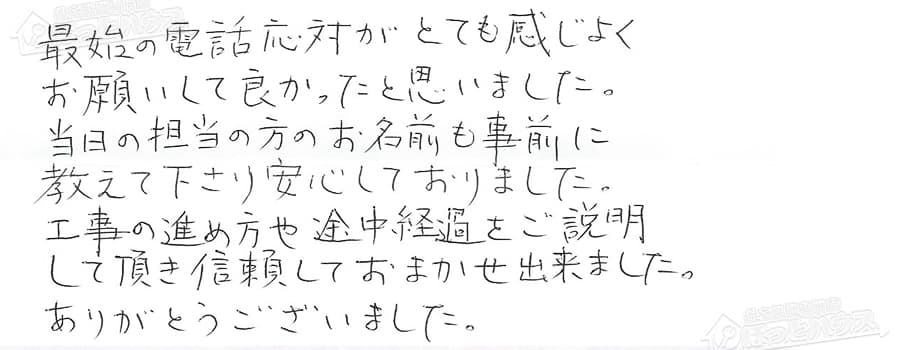 最始の電話応対がとても感じよく
お願いして良かったと思いました。
当日の担当の方のお名前も事前に
教えて下さり安心しておりました。
工事の進め方や途中経過をご説明
して頂き信頼しておまかせ出来ました。
ありがとうございました。